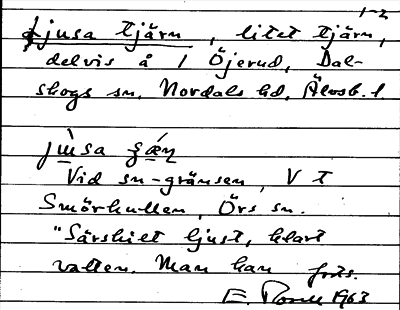 1-2
Ljusa tjärn, litet tjärn,
delvis å 1 Öjerud, Dal-
skogs sn. Nordals hd. Älvsb. l.
Vid sn-gränsen, V t
Smörkullen, Örs sn.
"Särskilt ljust, klart
vatten. Man kan forts.
E. 1963